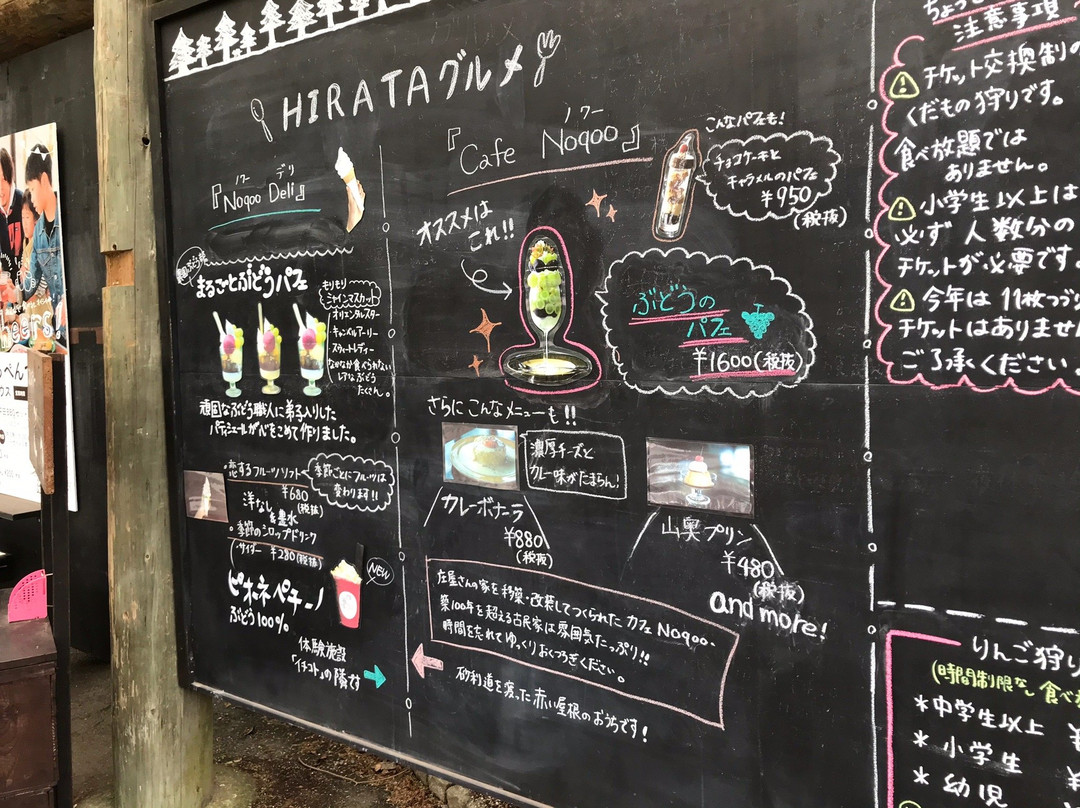 HIRATAグルメ
ノワー デリ
『Noqoo Deli』
まるごとぶどうパフェ
もりもり
シャインマスカット
オリエンタルスター
キャンベルアーリー
スウィートレディー
なかなか食べられない
レアなぶどう
たくさん。
頑固なぶどう職人に弟子入りした
パティシエールが心をこめて作りました。
・恋するフルーツソフト
¥680
(税抜)
季節ごとにフルーツは
変わります!!
洋なし
&墨水
・季節のシロップドリンク
(・サイダー ¥280(税抜)
ピオーネペチーノ
ぶどう100%
NEW
体験施設
「イチコト」の隣です
ノワー
『Cafe Noqoo』
オススメは
これ!!
こんなパフェも!
チョコケーキと
キャラメルのパフェ
¥950
(税抜)
ぶどうの
パフェ
¥1600(税抜)
さらにこんなメニューも!!
濃厚チーズと
カレー味がたまらん!
カレーボナーラ
¥880
(税抜)
山奥プリン
¥480
(税抜)
and more!
庄屋さんの家を移築・改装してつくられたカフェNoqoo。
築100年を超える古民家は雰囲気たっぷり!!
時間を忘れてゆっくりおくつろぎください。
砂利道を渡った赤い屋根のおうちです!
ちょっと
注意事項
チケット交換制の
くだもの狩りです。
食べ放題では
ありません。
小学生以上は
必ず人数分の
チケットが必要です。
今年は11枚つづり
チケットはありません
ご了承ください。
りんご狩り
(時間制限なし 食べ
*中学生以上 ¥
*小学生 ¥
*幼児 ¥